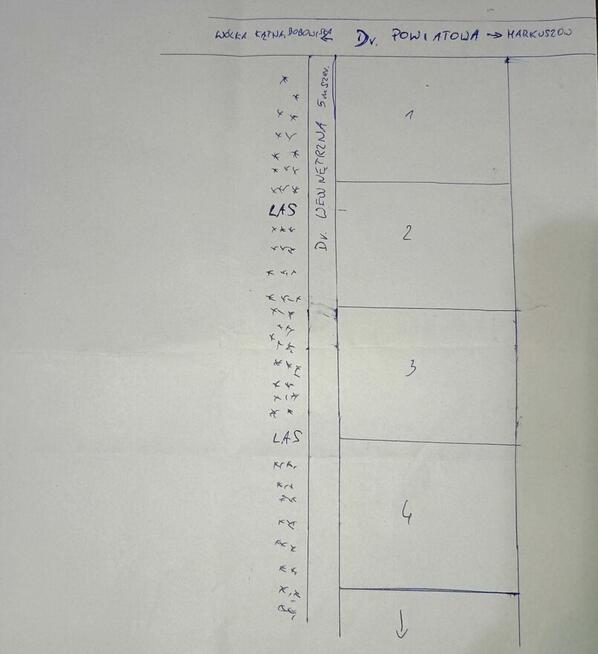 WÓLKA KĄTNA, BOBOWISKA ← Dr. POWIATOWA → MARKUSZÓW
Dr. WEWNĘTRZNA 5m szer.
1
LAS
2
3
LAS
4